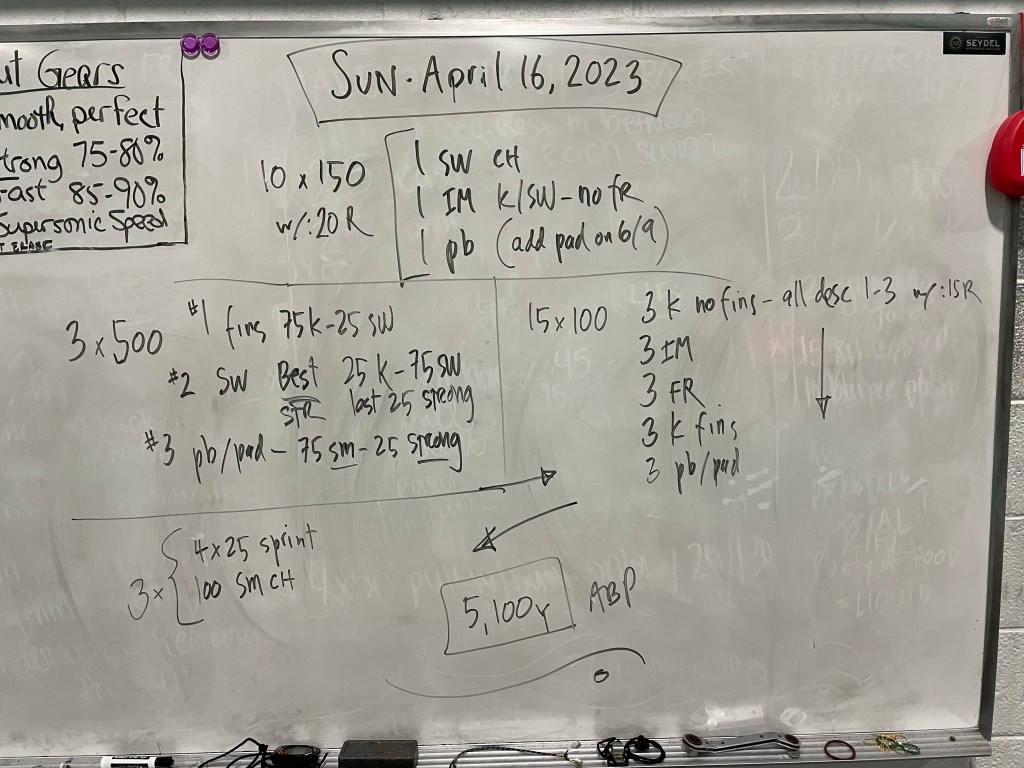 ut Gears
mooth, perfect
trong 75-80%
Fast 85-90%
Supersonic Speed
SEYDEL
SUN. April 16, 2023
10 x 150
w/:20 R
1 SW CH
1 IM K/SW - no fr
1 pb (add pad on 6/9)
3 x 500
#1 fins 75K-25 SW
#2 SW Best 25 K-75 SW
STR last 25 strong
#3 pb/pad - 75 sm - 25 strong
15 x 100
3 K no fins - all desc 1-3 w/:15R
3 IM
3 FR
3 K fins
3 pb/pad
3x
4x25 sprint
100 SM CH
5,100y
ABP